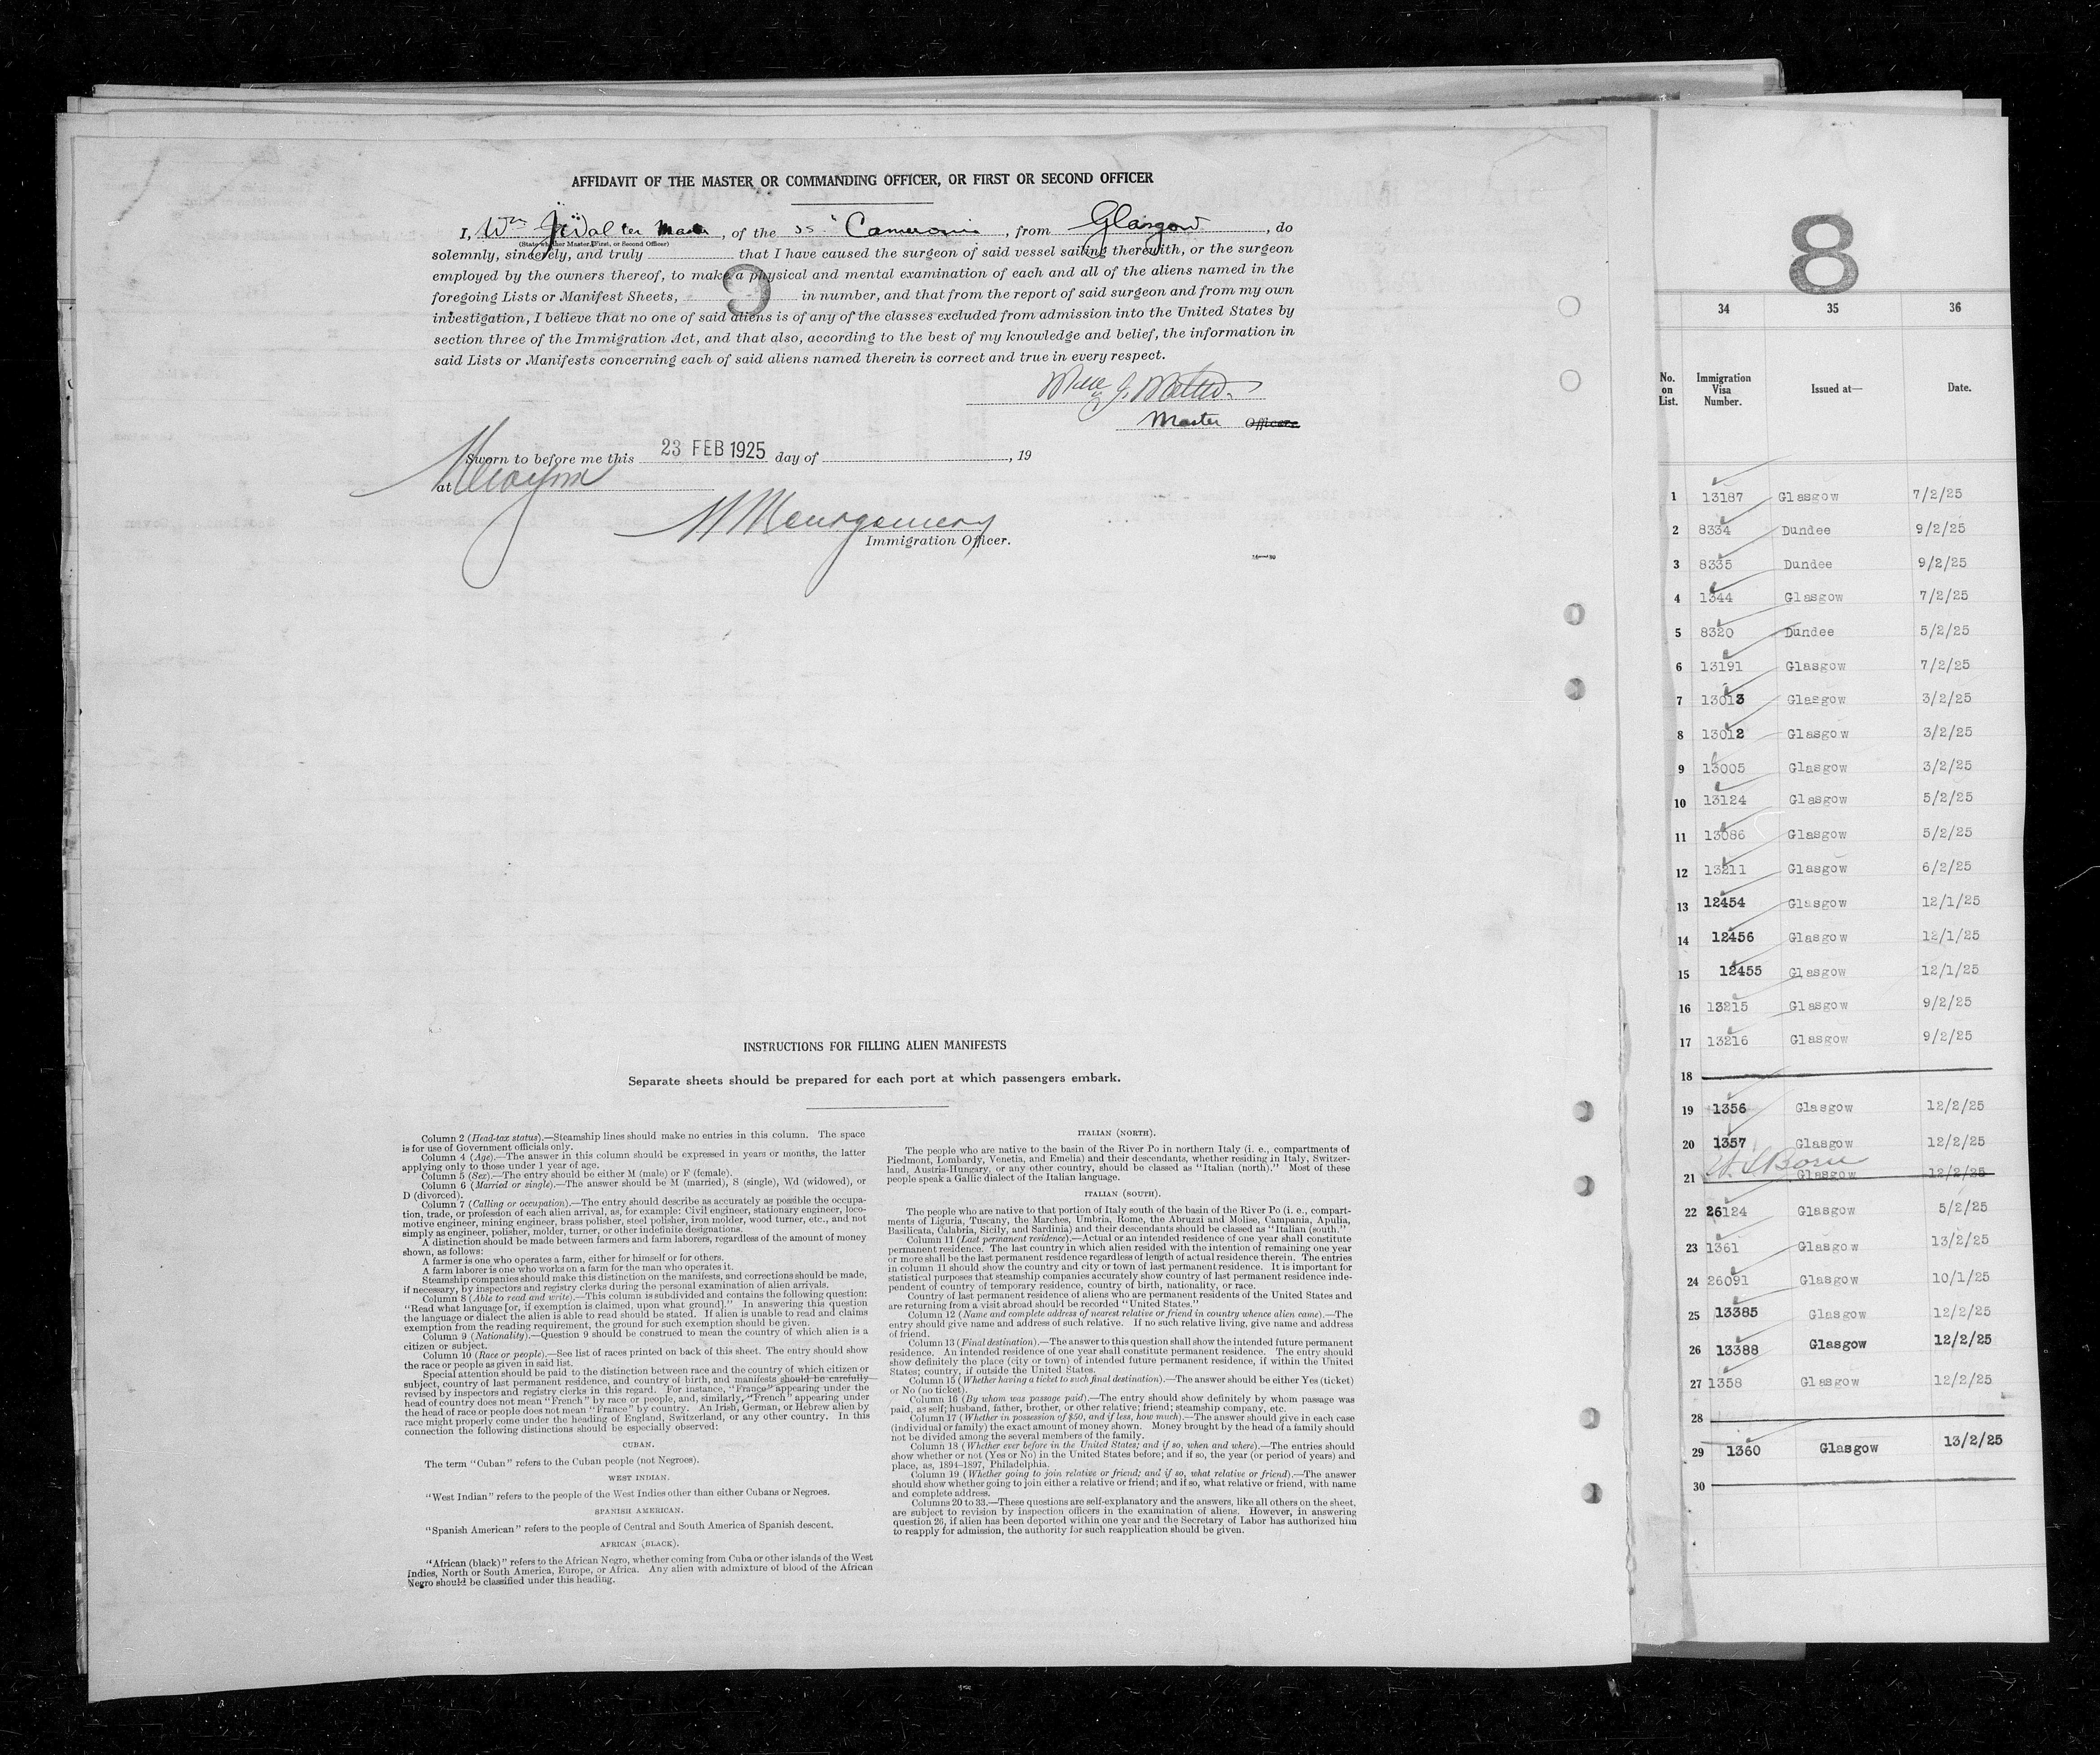 AFFIDAVIT OF THE MASTER OR COMMANDING OFFICER, OR FIRST OR SECOND OFFICER
I, Wm J. Walter Master, of the SS "Cameronia, from Glasgow, do
(State whether Master, First, or Second Officer)
solemnly, sincerely, and truly that I have caused the surgeon of said vessel sailing therewith, or the surgeon
employed by the owners thereof, to make a physical and mental examination of each and all of the aliens named in the
foregoing Lists or Manifest Sheets, in number, and that from the report of said surgeon and from my own
investigation, I believe that no one of said aliens is of any of the classes excluded from admission into the United States by
section three of the Immigration Act, and that also, according to the best of my knowledge and belief, the information in
said Lists or Manifests concerning each of said aliens named therein is correct and true in every respect.
Master Officer.
Sworn to before me this 23 FEB 1925 day of , 19
at
Montgomery
Immigration Officer.
INSTRUCTIONS FOR FILLING ALIEN MANIFESTS
Separate sheets should be prepared for each port at which passengers embark.
Column 2 (Head-tax status).—Steamship lines should make no entries in this column. The space
is for use of Government officials only.
Column 4 (Age).—The answer in this column should be expressed in years or months, the latter
applying only to those under 1 year of age.
Column 5 (Sex).—The entry should be either M (male) or F (female).
Column 6 (Married or single).—The answer should be M (married), S (single), Wd (widowed), or
D (divorced).
Column 7 (Calling or occupation).—The entry should describe as accurately as possible the occupa-
tion, trade, or profession of each alien arrival, as, for example: Civil engineer, stationary engineer, loco-
motive engineer, mining engineer, brass polisher, steel polisher, iron molder, wood turner, etc., and not
simply as engineer, polisher, molder, turner, or other indefinite designations.
A distinction should be made between farmers and farm laborers, regardless of the amount of money
shown, as follows:
A farmer is one who operates a farm, either for himself or for others.
A farm laborer is one who works on a farm for the man who operates it.
Steamship companies should make this distinction on the manifests, and corrections should be made,
if necessary, by inspectors and registry clerks during the personal examination of alien arrivals.
Column 8 (Able to read and write).—This column is subdivided and contains the following question:
"Read what language [or, if exemption is claimed, upon what ground]." In answering this question
the language or dialect the alien is able to read should be stated. If alien is unable to read and claims
exemption from the reading requirement, the ground for such exemption should be given.
Column 9 (Nationality).—Question 9 should be construed to mean the country of which alien is a
citizen or subject.
Column 10 (Race or people).—See list of races printed on back of this sheet. The entry should show
the race or people as given in said list.
Special attention should be paid to the distinction between race and the country of which citizen or
subject, country of last permanent residence, and country of birth, and manifests should be carefully
revised by inspectors and registry clerks in this regard. For instance, "France" appearing under the
head of country does not mean "French" by race or people, and, similarly, "French" appearing under
the head of race or people does not mean "France" by country. An Irish, German, or Hebrew alien by
race might properly come under the heading of England, Switzerland, or any other country. In this
connection the following distinctions should be especially observed:
CUBAN.
The term "Cuban" refers to the Cuban people (not Negroes).
WEST INDIAN.
"West Indian" refers to the people of the West Indies other than either Cubans or Negroes.
SPANISH AMERICAN.
"Spanish American" refers to the people of Central and South America of Spanish descent.
AFRICAN (BLACK).
"African (black)" refers to the African Negro, whether coming from Cuba or other islands of the West
Indies, North or South America, Europe, or Africa. Any alien with admixture of blood of the African
Negro should be classified under this heading.
ITALIAN (NORTH).
The people who are native to the basin of the River Po in northern Italy (i. e., compartments of
Piedmont, Lombardy, Venetia, and Emelia) and their descendants, whether residing in Italy, Switzer-
land, Austria-Hungary, or any other country, should be classed as "Italian (north)." Most of these
people speak a Gallic dialect of the Italian language.
ITALIAN (SOUTH).
The people who are native to that portion of Italy south of the basin of the River Po (i. e., compart-
ments of Liguria, Tuscany, the Marches, Umbria, Rome, the Abruzzi and Molise, Campania, Apulia,
Basilicata, Calabria, Sicily, and Sardinia) and their descendants should be classed as "Italian (south."
Column 11 (Last permanent residence).—Actual or an intended residence of one year shall constitute
permanent residence. The last country in which alien resided with the intention of remaining one year
or more shall be the last permanent residence regardless of length of actual residence therein. The entries
in column 11 should show the country and city or town of last permanent residence. It is important for
statistical purposes that steamship companies accurately show country of last permanent residence inde-
pendent of country of temporary residence, country of birth, nationality, or race.
Country of last permanent residence of aliens who are permanent residents of the United States and
are returning from a visit abroad should be recorded "United States."
Column 12 (Name and complete address of nearest relative or friend in country whence alien came).—The
entry should give name and address of such relative. If no such relative living, give name and address
of friend.
Column 13 (Final destination).—The answer to this question shall show the intended future permanent
residence. An intended residence of one year shall constitute permanent residence. The entry should
show definitely the place (city or town) of intended future permanent residence, if within the United
States; country, if outside the United States.
Column 15 (Whether having a ticket to such final destination).—The answer should be either Yes (ticket)
or No (no ticket).
Column 16 (By whom was passage paid).—The entry should show definitely by whom passage was
paid, as self; husband, father, brother, or other relative; friend; steamship company, etc.
Column 17 (Whether in possession of $50, and if less, how much).—The answer should give in each case
(individual or family) the exact amount of money shown. Money brought by the head of a family should
not be divided among the several members of the family.
Column 18 (Whether ever before in the United States; and if so, when and where).—The entries
should show whether or not (Yes or No) in the United States before; and if so, the year (or period of years) and
place, as, 1894-1897, Philadelphia.
Column 19 (Whether going to join relative or friend; and if so, what relative or friend).—The answer
should show whether going to join either a relative or friend; and if so, what relative or friend, with name
and complete address.
Columns 20 to 33.—These questions are self-explanatory and the answers, like all others on the sheet,
are subject to revision by inspection officers in the examination of aliens. However, in answering
question 26, if alien has been deported within one year and the Secretary of Labor has authorized him
to reapply for admission, the authority for such reapplication should be given.
8
34 35 36
No. on List. Immigration Visa Number. Issued at— Date.
1 13187 Glasgow 7/2/25
2 8334 Dundee 9/2/25
3 8335 Dundee 9/2/25
4 1344 Glasgow 7/2/25
5 8320 Dundee 5/2/25
6 13191 Glasgow 7/2/25
7 13013 Glasgow 3/2/25
8 13012 Glasgow 3/2/25
9 13005 Glasgow 3/2/25
10 13124 Glasgow 5/2/25
11 13086 Glasgow 5/2/25
12 13211 Glasgow 6/2/25
13 12454 Glasgow 12/1/25
14 12456 Glasgow 12/1/25
15 12455 Glasgow 12/1/25
16 13215 Glasgow 9/2/25
17 13216 Glasgow 9/2/25
18
19 1356 Glasgow 12/2/25
20 1357 Glasgow 12/2/25
U.S. Born
21 Glasgow 12/2/25
22 26124 Glasgow 5/2/25
23 1361 Glasgow 13/2/25
24 26091 Glasgow 10/1/25
25 13385 Glasgow 12/2/25
26 13388 Glasgow 12/2/25
27 1358 Glasgow 12/2/25
28
29 1360 Glasgow 13/2/25
30